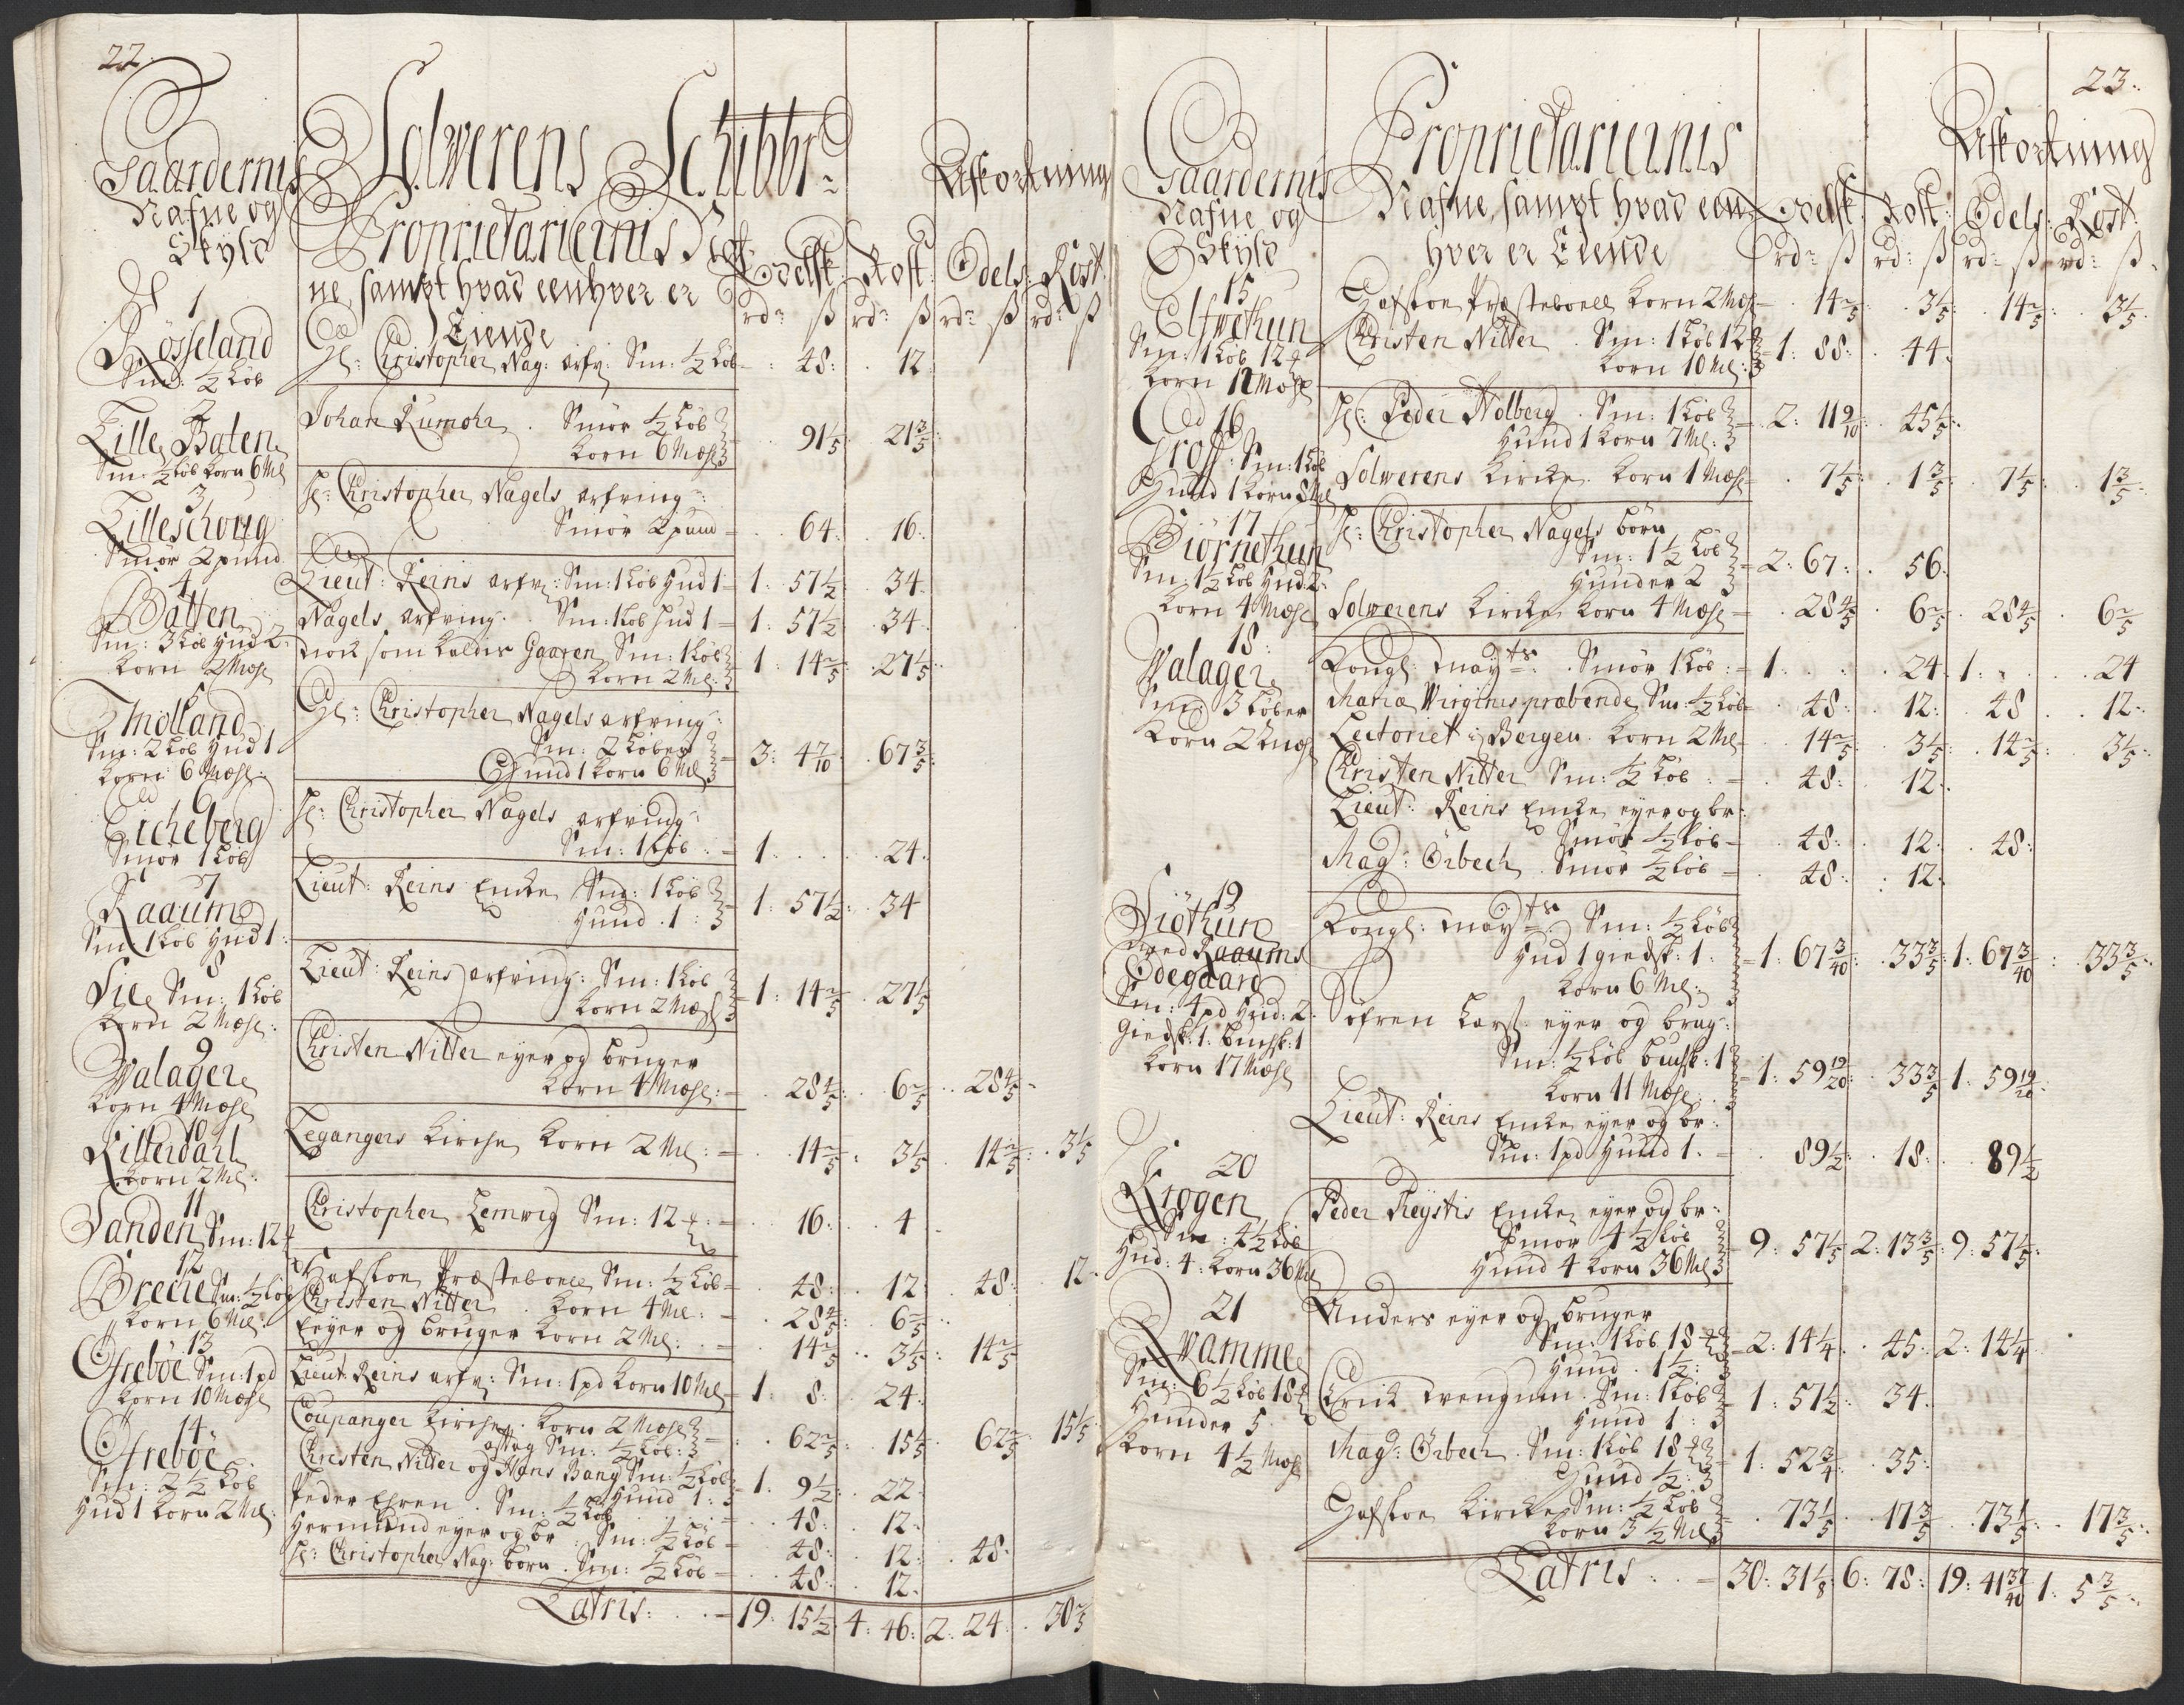 22.
Gaardernis
Nafne og
Skyld
Solwerens Schibbr:
Proprietariernis Naf-
ne, sampt hvad eenhver er
Eiende
Afkortning
Odelsk: Rost: Odels: Rost:
rd: ß rd: ß rd: ß rd: ß
1
Rösseland
Sm: ½ Löb
Sl: Christopher Nag: arfv: Sm: ½ Löb - 48: 12:
2
Lille Baten
Sm: ½ Löb Korn 6 Ml
Johan Rumohr. Smör ½ Löb
Korn 6 Mæle 91 1/5 21 3/5
3
Lilleschoug
Smör 2 pund
Sl: Christopher Nagels arfving:
Smör 2 pund - 64: 16:
4
Batten
Sm: 3 Löb Hud 2
Korn 2 Mæle
Lieut: Reins arfv: Sm: 1 Löb Hud 1 - 1: 57½: 34:
Nagels arfving: Sm: 1 Löb Hud 1 - 1: 57½: 34:
noch som kaldis Gaaren Sm: 1 Löb
Korn 2 Ml: 1: 14 2/5: 27 1/5:
5
Molland
Sm: 2 Löb Hud 1
Korn 6 Mæle
Sl: Christopher Nagels arfving:
Sm: 2 Löber
Huud 1 Korn 6 Ml 3: 4 7/10: 67 3/5:
6
Eicheberg
Smör 1 Löb
Sl: Christopher Nagels arfving:
Sm: 1 Löb - 1: 24:
7
Raaum
Sm: 1 Löb Hud 1:
Lieut: Reins Encke Sm: 1 Löb
Huud 1: 1: 57½: 34
8
Lie Sm: 1 Löb
Korn 2 Mæle:
Lieut: Reins arfving: Sm: 1 Löb
Korn 2 Mæl 1: 14 2/5: 27 1/5
9
Walager
Korn 4 Mæle
Christen Nitter eyer og bruger
Korn 4 Mæle: - 28 4/5: 6 2/5 28 4/5
10
Ritterdahl
Korn 2 Ml:
Legangers Kirche Korn 2 Ml: - 14 2/5: 3 1/5 14 2/5: 3 1/5
11
Sanden Sm: 12
Christopher Lemvig Sm: 12 - 16: 4
12
Brecke Sm: ½ Löb
Korn 6 Ml:
Hafsloe Præsteboell Sm: ½ Löb - 48: 12: 48: 12
Christen Nitter. Korn 4 Ml: - 28 4/5: 6 2/5
Eeyer og bruger Korn 2 Ml: - 14 2/5: 3 1/5: 14 2/5
13
Ofreböe Sm: 1 pd
Korn 10 Mæle
Lieut: Reins arfv: Sm: 1 pd Korn 10 Ml - 1: 8: 24:
14
Ofreböe
Sm: 2½ Löb
Hud 1 Korn 2 Ml:
Coupanger Kirche: Korn 2 Mæle
Sm: ½ Löb: 62 2/5: 15 1/5 62 2/5: 15 1/5
Christen Nitter og Hans Bang Sm: ½ Löb
Huud 1: 1: 9½: 22:
Peder Ehren. Sm: ½ Löb 48: 12:
Hermund eyer og br: Sm: ½ Löb - 48: 12: 48:
Sl: Christopher Nag: börn. Sm: ½ Löb - 48: 12:
Latris: - 19: 15½ 4: 46: 2: 24: 30 2/5
23:
Gaardernis
Nafne og
Skyld
Proprietariernis
Nafne, sampt hvad een-
hver er Eiende
Afkortning
Odelsk: Rost: Odels: Rost:
rd: ß rd: ß rd: ß rd: ß
15
Elfvethun
Sm: 1 Löb 12
Korn 12 Mæle
Hafsloe Præsteboell Korn 2 Mæl - 14 2/5: 3 1/5: 14 2/5: 3 1/5:
Christen Nitter. Sm: 1 Löb 12
Korn 10 Ml: 1: 88: 44:
16
Groff: Sm: 1 Löb
Huud 1 Korn 8 Ml
Sl: Peder Holberg. Sm: 1 Löb
Huud 1 Korn 7 Ml: 2: 11 9/10 45 1/5:
Solwerens Kirche. Korn 1 Mæle - 7 1/5: 1 3/5: 7 1/5: 1 3/5
17
Biörnethun
Sm: 1½ Löb Hud: 2
Korn 4 Mæle
Sl: Christopher Nagels börn
Sm: 1½ Löb
Hunder 2 2: 67: 56:
Solwerens Kirche Korn 4 Mæle - 28 4/5 6 2/5 28 4/5: 6 2/5
18:
Walager
Sm: 3 Löber
Korn 2 Mæle
Kongl: Mayts. Smör 1 Löb: - 1: 24 1: 24
Maria Virginis præbende Sm: ½ Löb - 48: 12: 48 12:
Lectoriet i Bergen. Korn 2 Ml - 14 2/5: 3 1/5: 14 2/5: 3 1/5:
Christen Nitter Sm: ½ Löb - 48: 12:
Lieut: Reins Encke eyer og br:
Smör ½ Löb - 48: 12: 48:
Mag: Örbech. Smör ½ Löb - 48: 12:
19
Siöthun
med Raaums
Ödegaard
Sm: 4 pd Hud: 2
Giedsk: 1: Buchsk: 1
Korn 17 Mæle
Kongl: Mayts: Sm: ½ Löb
Hud 1 giedsk: 1:
Korn 6 Ml: 1: 67 3/40: 33 3/5: 1: 67 3/40: 33 3/5:
Söfren Lars: eyer og brug:
Sm: ½ Löb Buchsk: 1
Korn 11 Mæle: 1: 59 19/20: 33 3/5 1: 59 19/20:
Lieut: Reins Encke eyer og br:
Sm: 1 pd Huud 1. - 89½: 18: 89½
20
Krogen
Sm: 4½ Löb
Hud: 4: Korn 36 Ml
Peder Reystis Encke eyer og br:
Smör 4½ Löb
Huud 4 Korn 36 Ml 9: 57 1/5 2: 13 3/5: 9: 57 1/5:
21
Kvamme
Sm: 6½ Löb 18
Hunder 5
Korn 4½ Mæle
Anders eyer og bruger
Sm: 1 Löb 18
Huud. 1½: 2: 14¼: 45: 2: 14¼
Erich Sm: 1 Löb
Huud 1: 1: 57½: 34:
Mag: Örbech. Sm: 1 Löb 18
Huud ½: 1: 52¾: 35:
Hafsloe Kirche Sm: ½ Löb
Korn 3½ Ml 73 1/5: 17 3/5: 73 1/5: 17 3/5:
Latris: - 30: 31 1/8 6: 78: 19: 41 37/40 1: 5 3/5